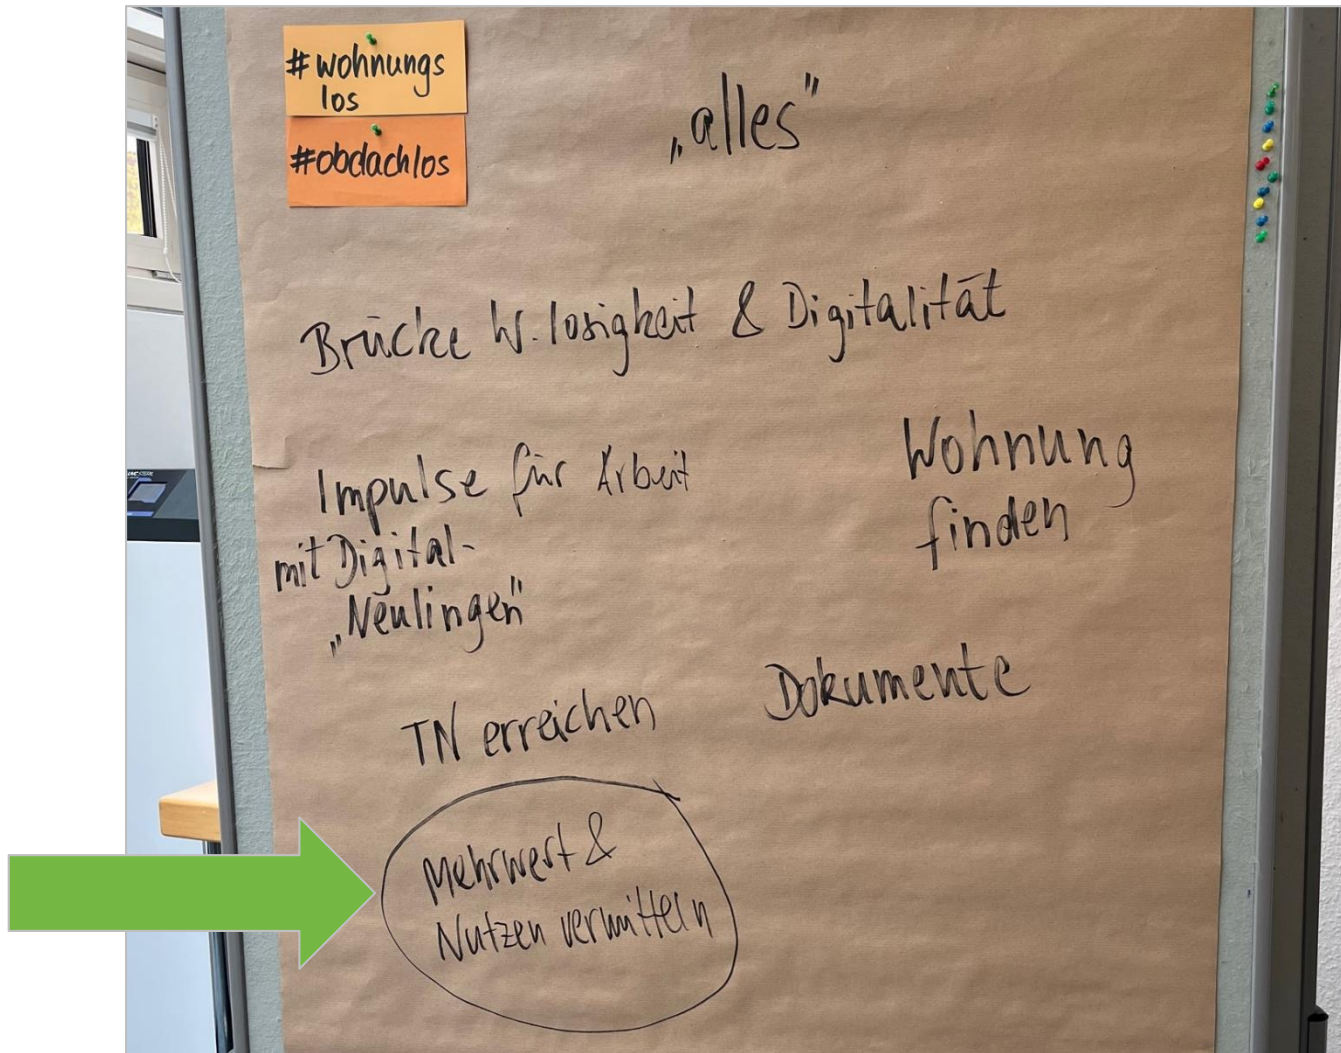 #wohnungs
los
#obdachlos
„alles"
Brücke W.losigkeit & Digitalität
Impulse für Arbeit
mit Digital-
„Neulingen"
Wohnung
finden
TN erreichen
Dokumente
Mehrwert &
Nutzen vermitteln